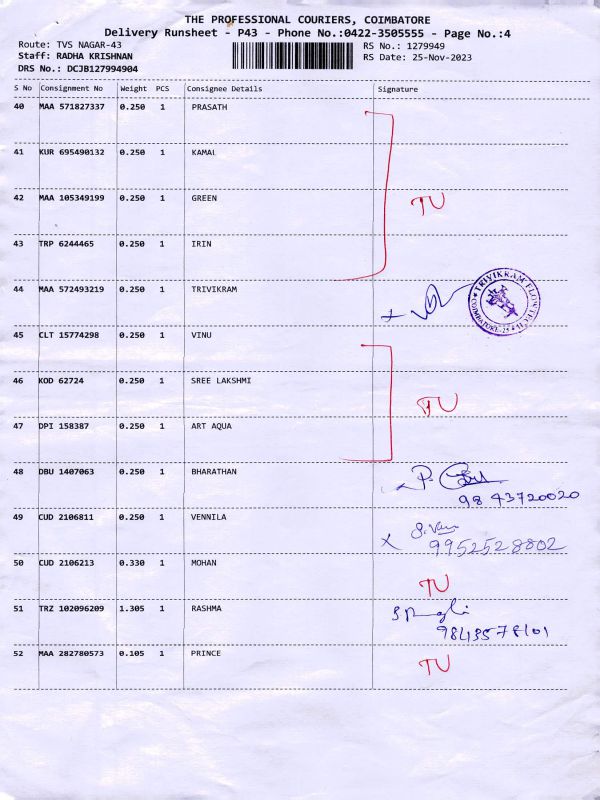 THE PROFESSIONAL COURIERS, COIMBATORE
Delivery Runsheet - P43 - Phone No.:0422-3505555 - Page No.:4
Route: TVS NAGAR-43 RS No.: 1279949
Staff: RADHA KRISHNAN RS Date: 25-Nov-2023
DRS No.: DCJB127994904
S No Consignment No Weight PCS Consignee Details Signature
40 MAA 571827337 0.250 1 PRASATH
41 KUR 695490132 0.250 1 KAMAL
42 MAA 105349199 0.250 1 GREEN TU
43 TRP 6244465 0.250 1 IRIN
44 MAA 572493219 0.250 1 TRIVIKRAM
TRIVIKRAM FLOWTECH COIMBATORE-25
45 CLT 15774298 0.250 1 VINU
46 KOD 62724 0.250 1 SREE LAKSHMI TU
47 DPI 158387 0.250 1 ART AQUA
48 DBU 1407063 0.250 1 BHARATHAN
98 43720020
49 CUD 2106811 0.250 1 VENNILA
X 9952528802
50 CUD 2106213 0.330 1 MOHAN TU
51 TRZ 102096209 1.305 1 RASHMA
52 MAA 282780573 0.105 1 PRINCE TU